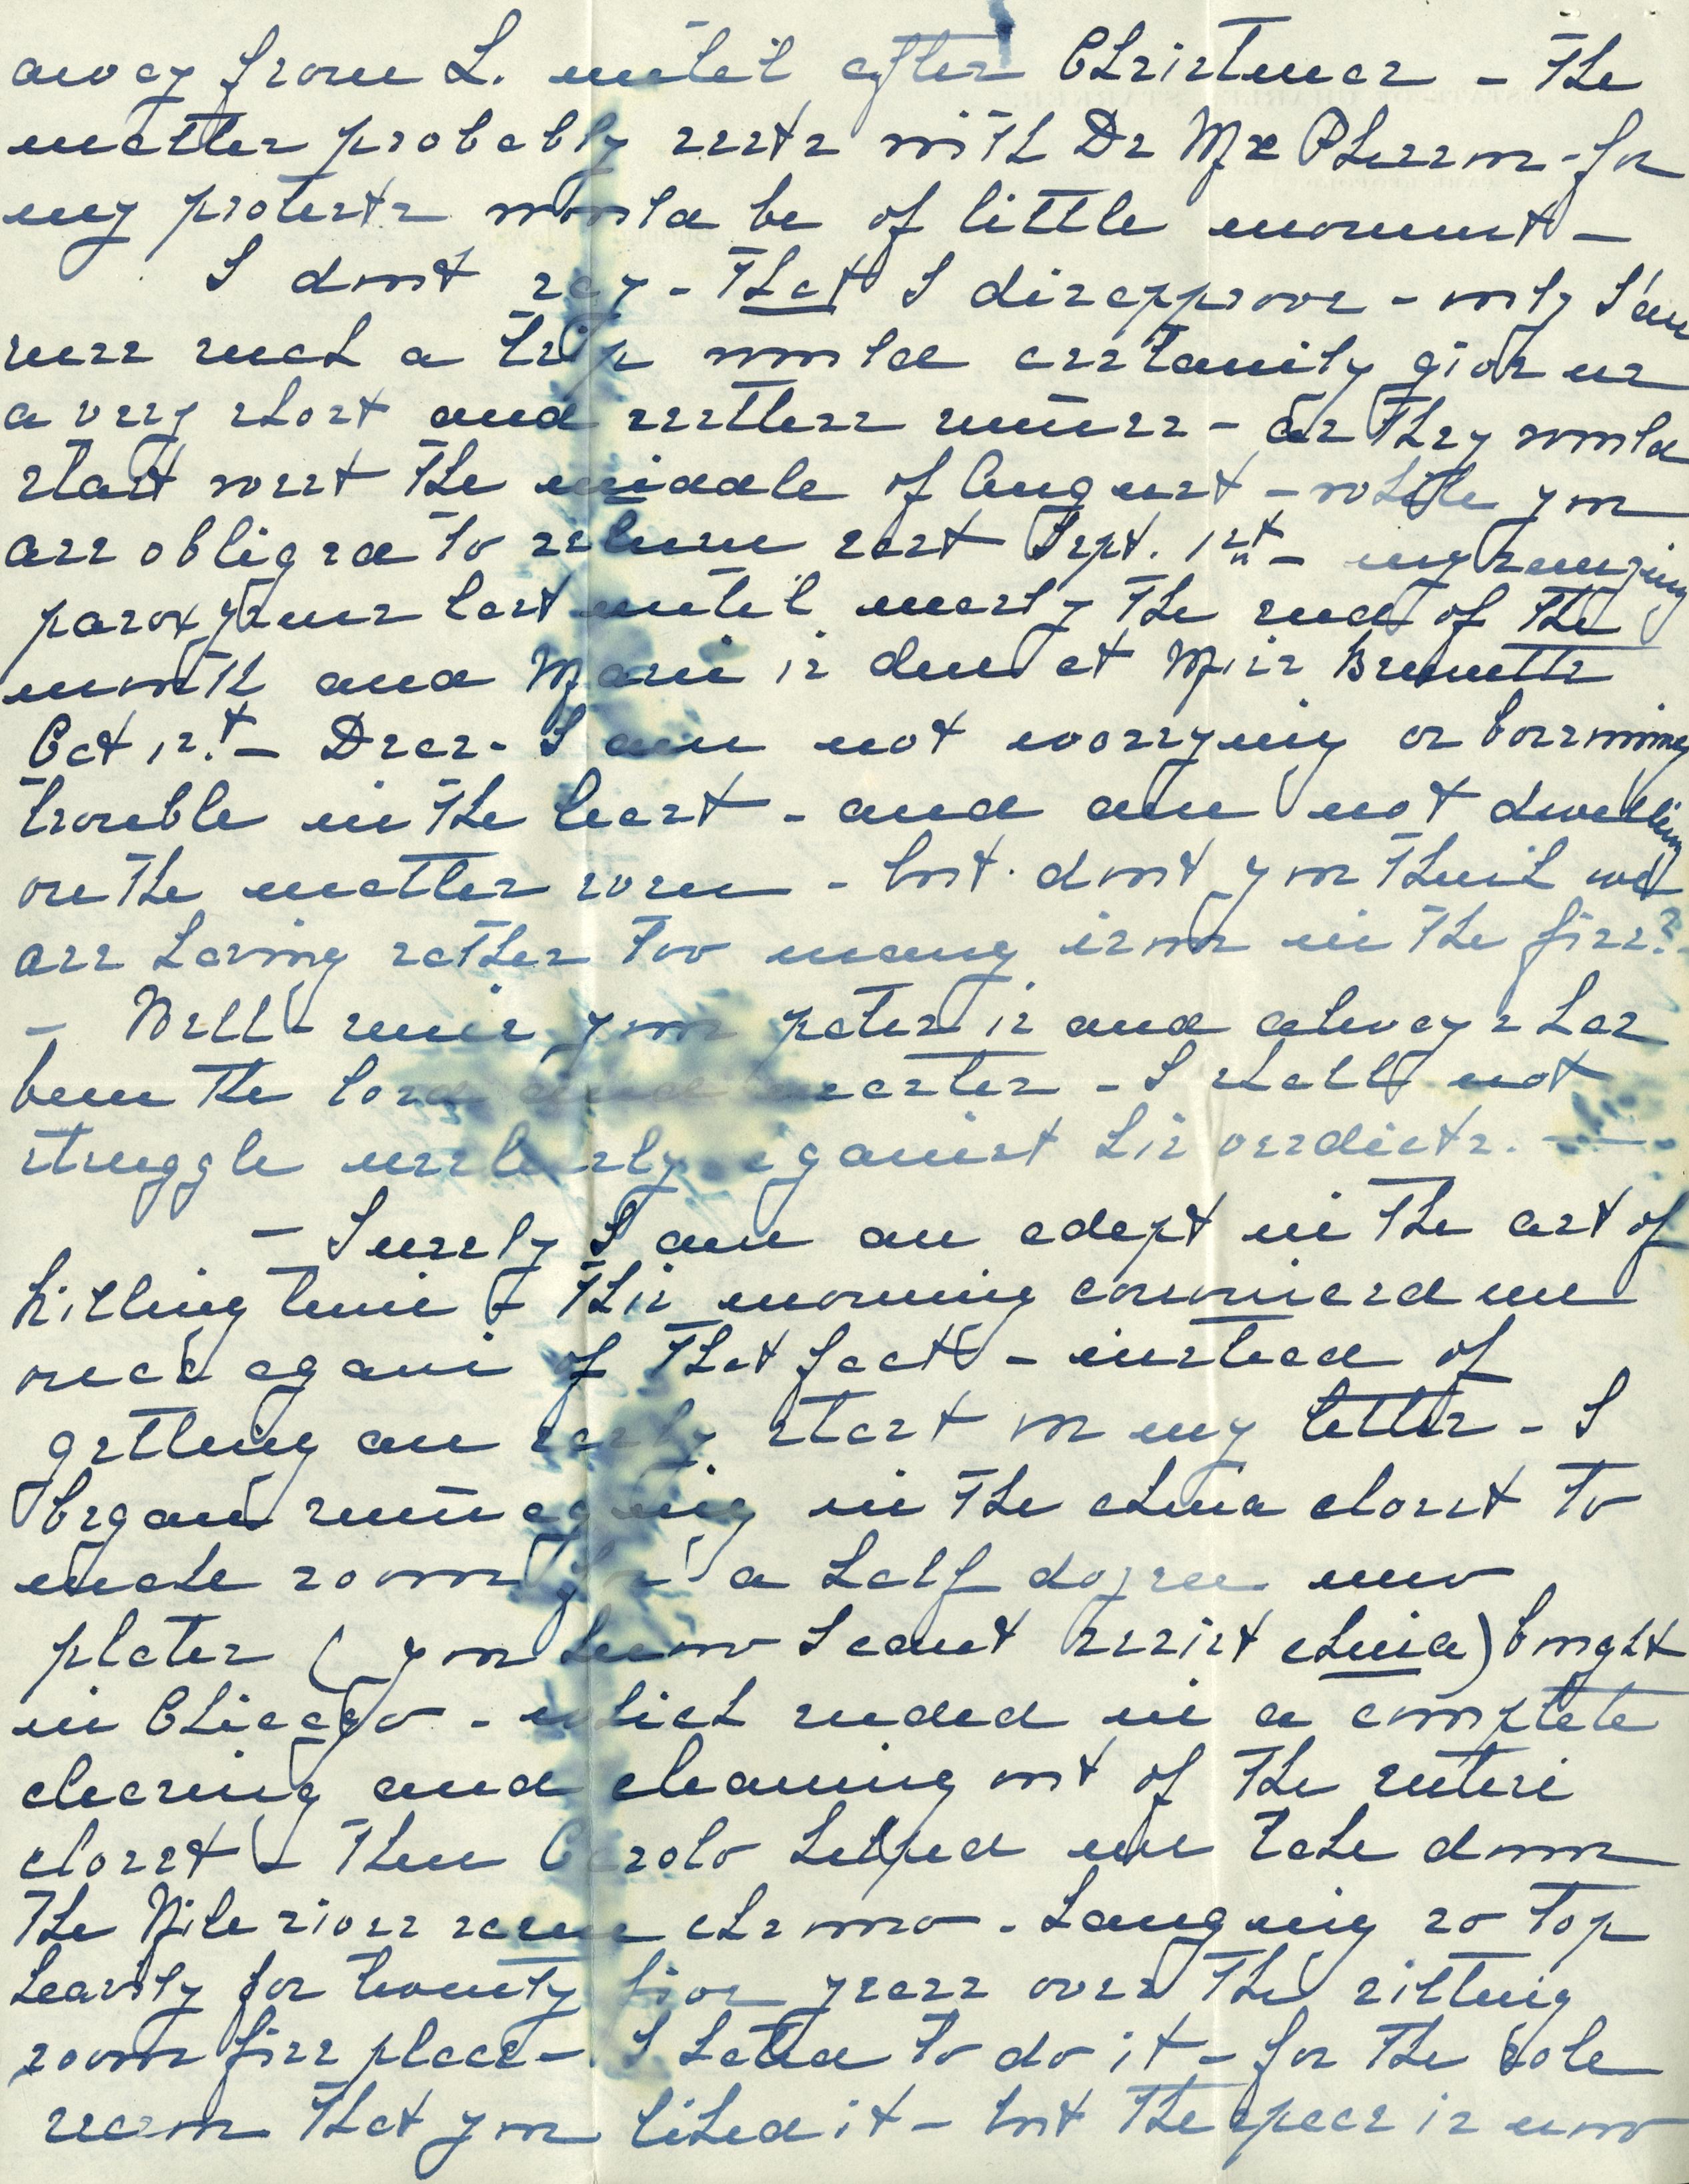 away from L. until after Christmas - The
matter probably rests with Dr Mc Pherson - for
my protests would be of little moment -
I dont say - That I disapprove - only I'am
sure such a trip would certainly give us
a very short and restless summer - as They would
start west The middle of August - while you
are obliged to return east Sept. 1st - my sneezing
paroxysms last until nearly The end of The
month and Marie is due at Miss Bennetts
Oct 1st. - Dear - I am not worrying or borrowing
trouble in The least - and am not dwelling
on The matter even - but dont you Think we
are having rather Too many irons in The fire?
- Well - since your pater is and always has
been The lord and master - I shall not
struggle uselessly against his verdicts. -
- Surely I am an adept in The art of
killing time - This morning convinced me
once again of That fact - instead of
getting an early start on my letter - I
began rummaging in The china closet To
make room for a half dozen new
plates (you know I cant resist china) bought
in Chicago - which ended in a complete
clearing and cleaning out of The entire
closet - Then Carolo helped me Take down
The Nile river scene chromo - hanging so Top
heavily for twenty five years over The sitting
room fire place - I hated To do it - for The sole
reason That you liked it - but The space is now